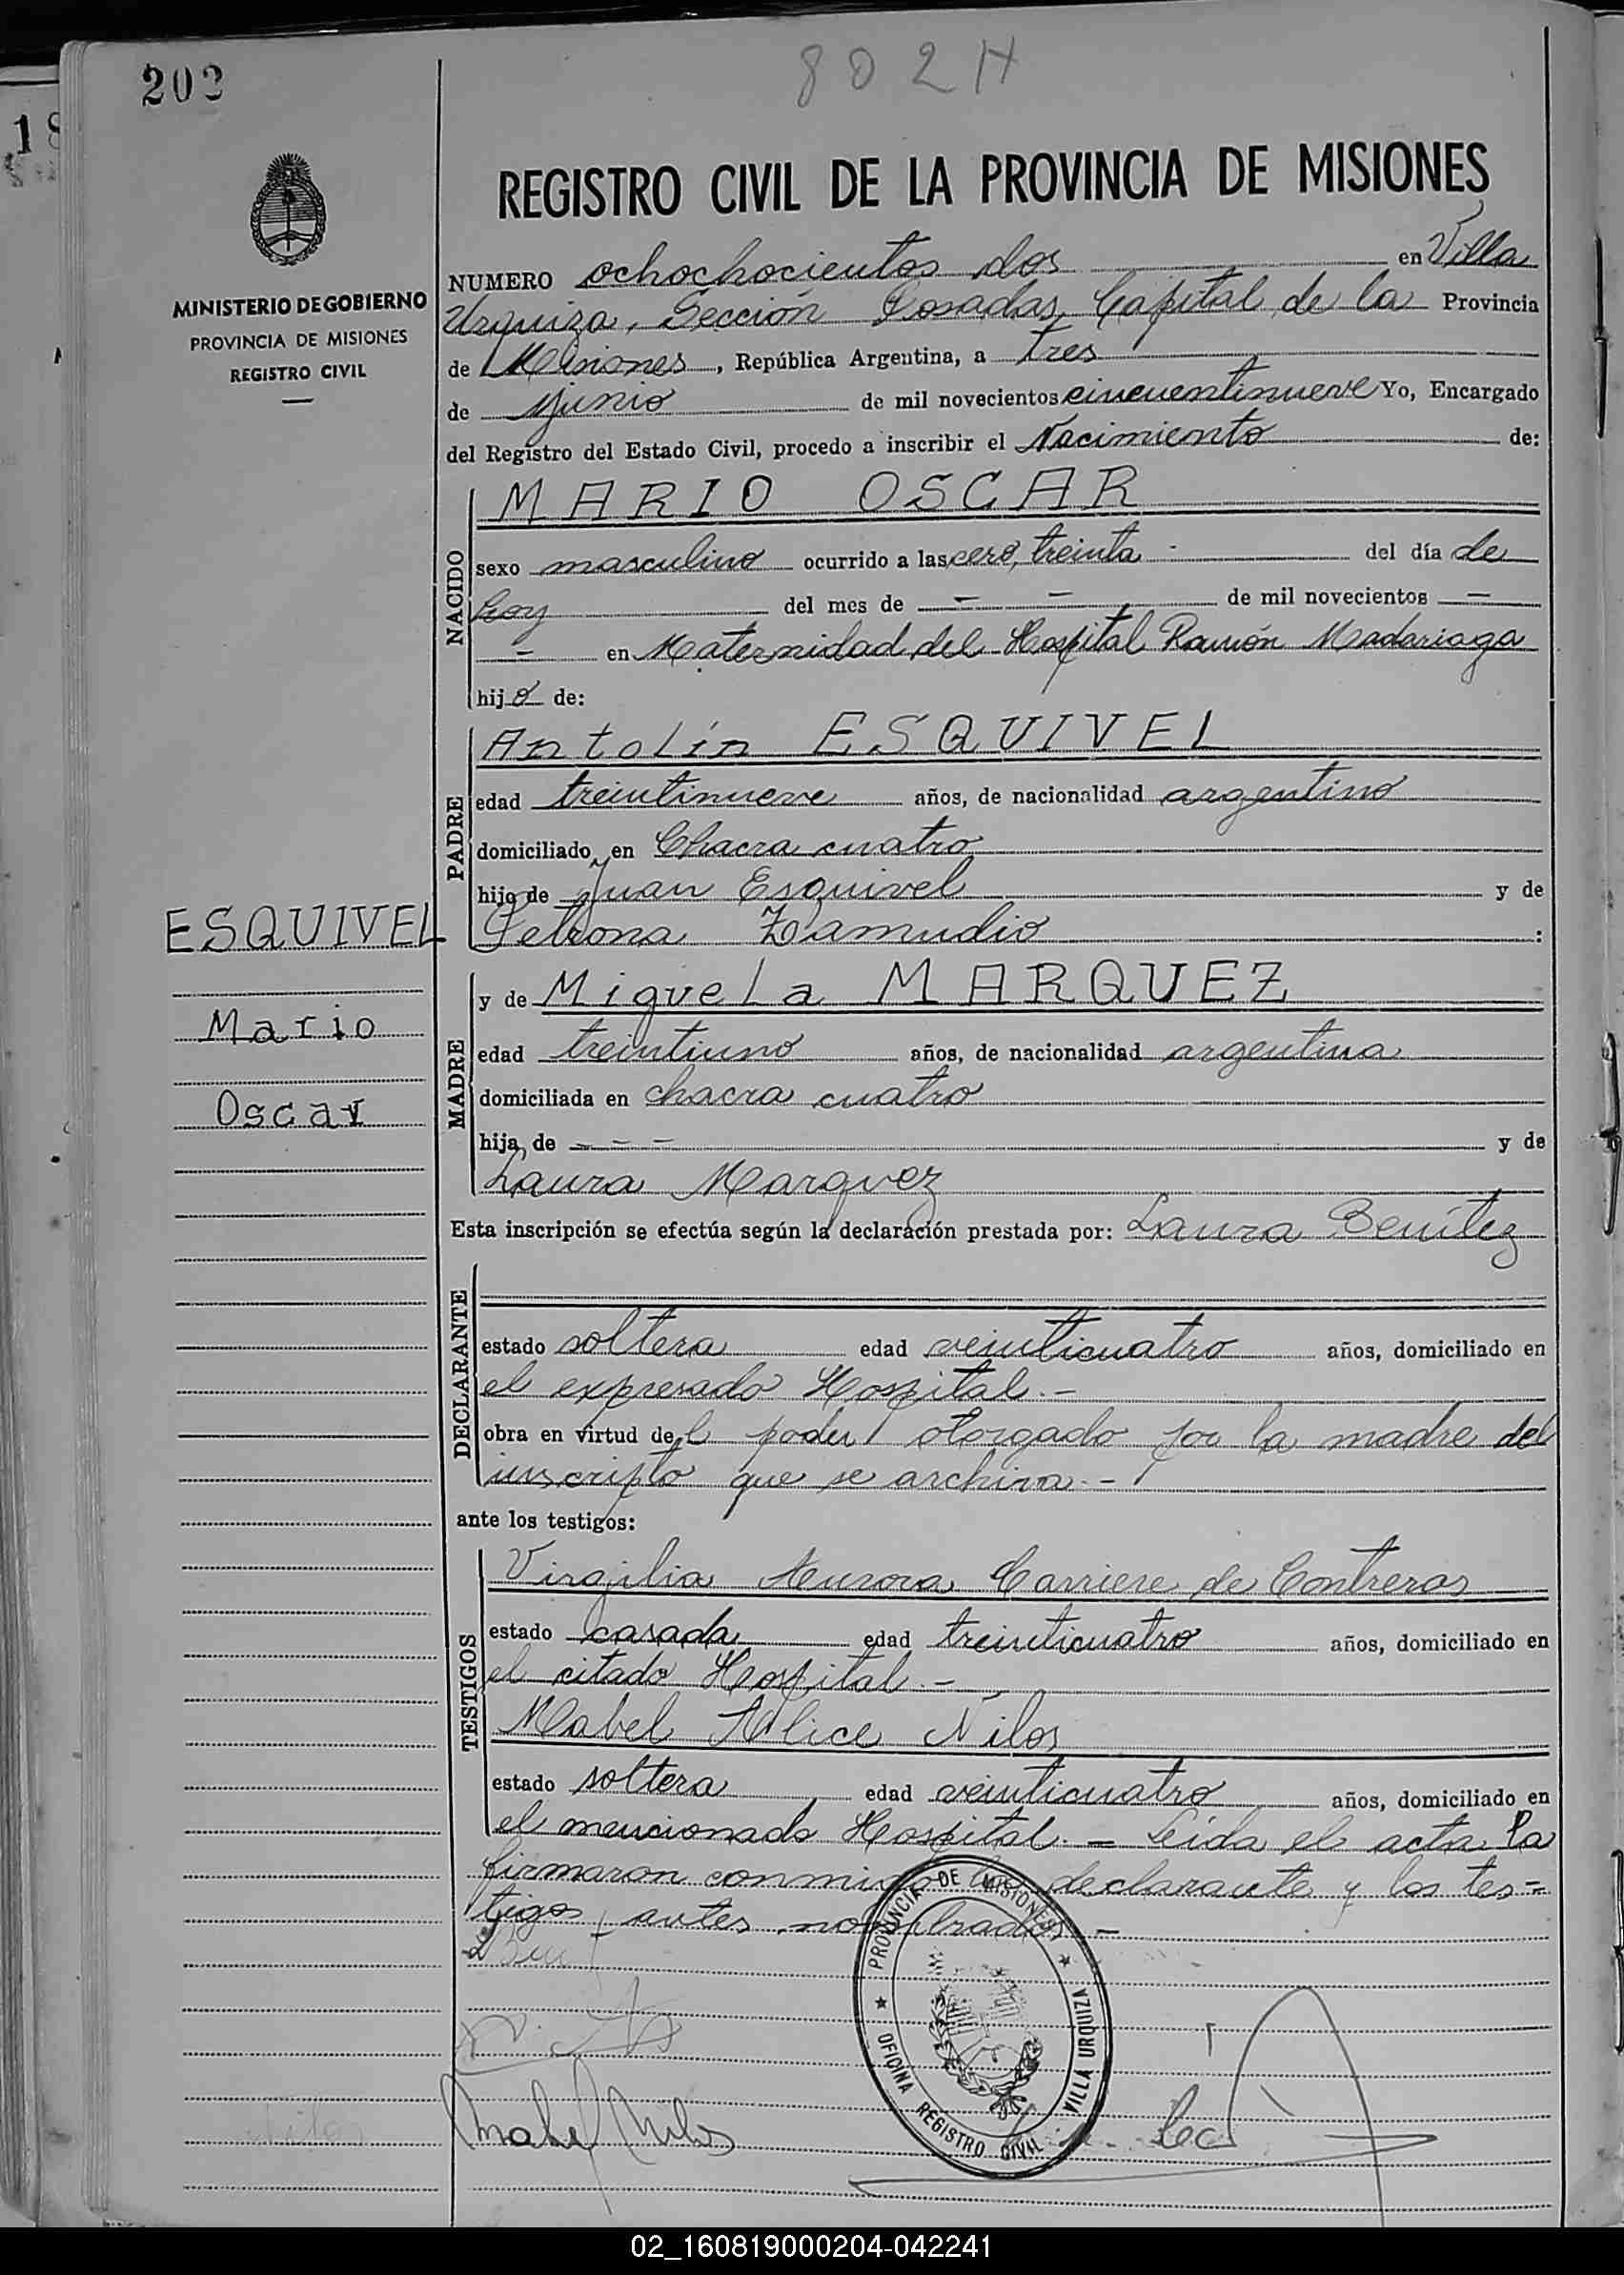 202
802 H
18
MINISTERIO DE GOBIERNO
PROVINCIA DE MISIONES
REGISTRO CIVIL
REGISTRO CIVIL DE LA PROVINCIA DE MISIONES
NUMERO ochochocientos dos en Villa
Urquiza, Sección Posadas, Capital de la Provincia
de Misiones, República Argentina, a tres
de junio de mil novecientos cincuentinueve Yo, Encargado
del Registro del Estado Civil, procedo a inscribir el Nacimiento de:
NACIDO
MARIO OSCAR
sexo masculino ocurrido a las cero, treinta - del día de
hoy del mes de - - de mil novecientos -
- en Maternidad del Hospital Ramón Madariaga
hijo de:
PADRE
Antolín ESQUIVEL
edad treintinueve años, de nacionalidad argentino
domiciliado en Chacra cuatro
hijo de Juan Esquivel y de
Petrona Zamudio :
ESQUIVEL
Mario
Oscar
MADRE
y de Miguela MARQUEZ
edad treintiuno años, de nacionalidad argentina
domiciliada en chacra cuatro
hija de - - - y de
Laura Marquez
Esta inscripción se efectúa según la declaración prestada por: Laura Benítez
DECLARANTE
estado soltera edad veinticuatro años, domiciliado en
el expresado Hospital.-
obra en virtud del poder otorgado por la madre del
inscripto que se archiva.-
ante los testigos:
TESTIGOS
Virgilia Aurora Carriere de Contreras
estado casada edad treinticuatro años, domiciliado en
el citado Hospital.-
Mabel Alice Nilos
estado soltera edad veinticuatro años, domiciliado en
el mencionado Hospital.- Leida el acta la
firmaron conmigo la declarante y los tes=
tigos antes nombrados.-
Mabel Nilos
PROVINCIA DE MISIONES
VILLA URQUIZA
OFICINA REGISTRO CIVIL
02_160819000204-042241